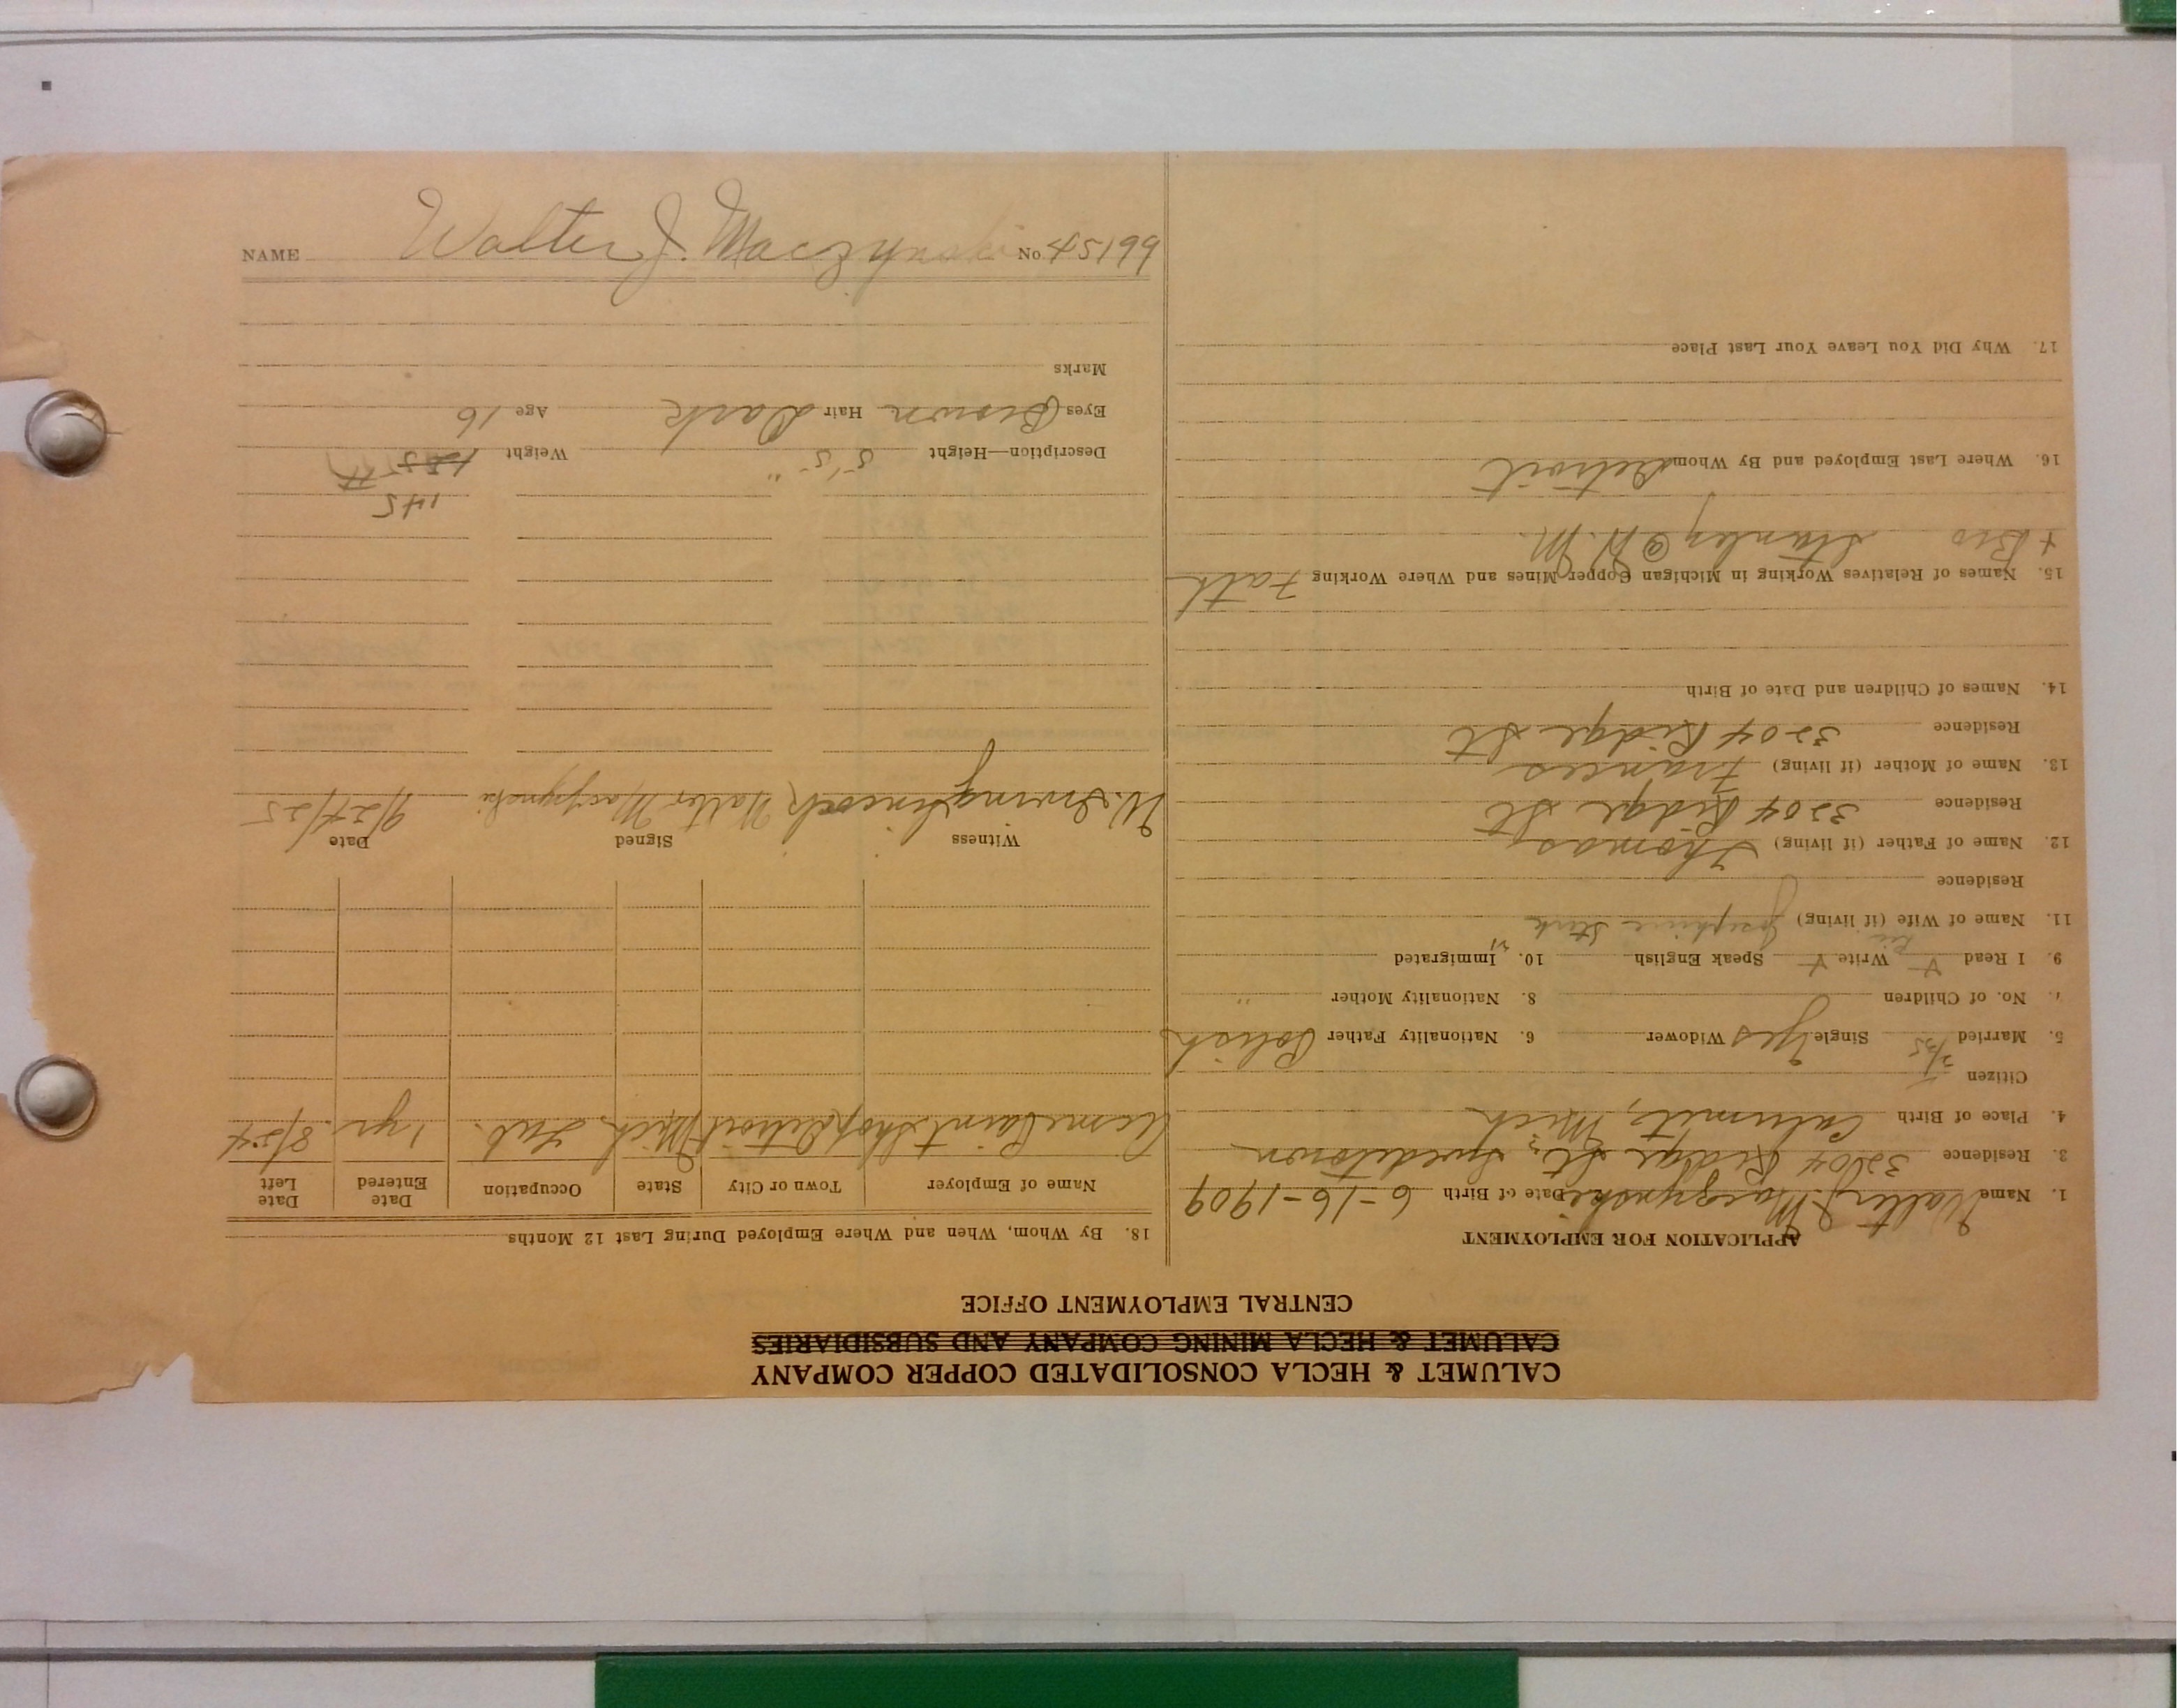 CALUMET & HECLA CONSOLIDATED COPPER COMPANY
CALUMET & HECLA MINING COMPANY AND SUBSIDIARIES
CENTRAL EMPLOYMENT OFFICE
APPLICATION FOR EMPLOYMENT
1. Name Walter J. Maczynski Date of Birth 6-16-1909
3. Residence 3204 Ridge St, Swedetown
4. Place of Birth Calumet, Mich
Citizen
5. Married 2/35 Single Yes Widower 6. Nationality Father Polish
No. of Children 8. Nationality Mother "
9. I Read Y Write Y Speak English 10. Immigrated
11. Name of Wife (if living) Josephine
Residence
12. Name of Father (if living) Thomas
Residence 3204 Ridge St
13. Name of Mother (if living) Frances
Residence 3204 Ridge St
14. Names of Children and Date of Birth
15. Names of Relatives Working in Michigan Copper Mines and Where Working Fath
+ Bro Stanley @ N. M.
16. Where Last Employed and By Whom Detroit
17. Why Did You Leave Your Last Place
18. By Whom, When and Where Employed During Last 12 Months
Name of Employer Town or City State Occupation Date Entered Date Left
Acme Paint Shop Detroit Mich Lab. 1 yr 8/24
Witness Signed Date
W. Irving Walter Maczynski 9/24/25
145
Description—Height 5'5" Weight 155
Eyes Brown Hair Dark Age 16
Marks
NAME Walter J. Maczynski No 45199